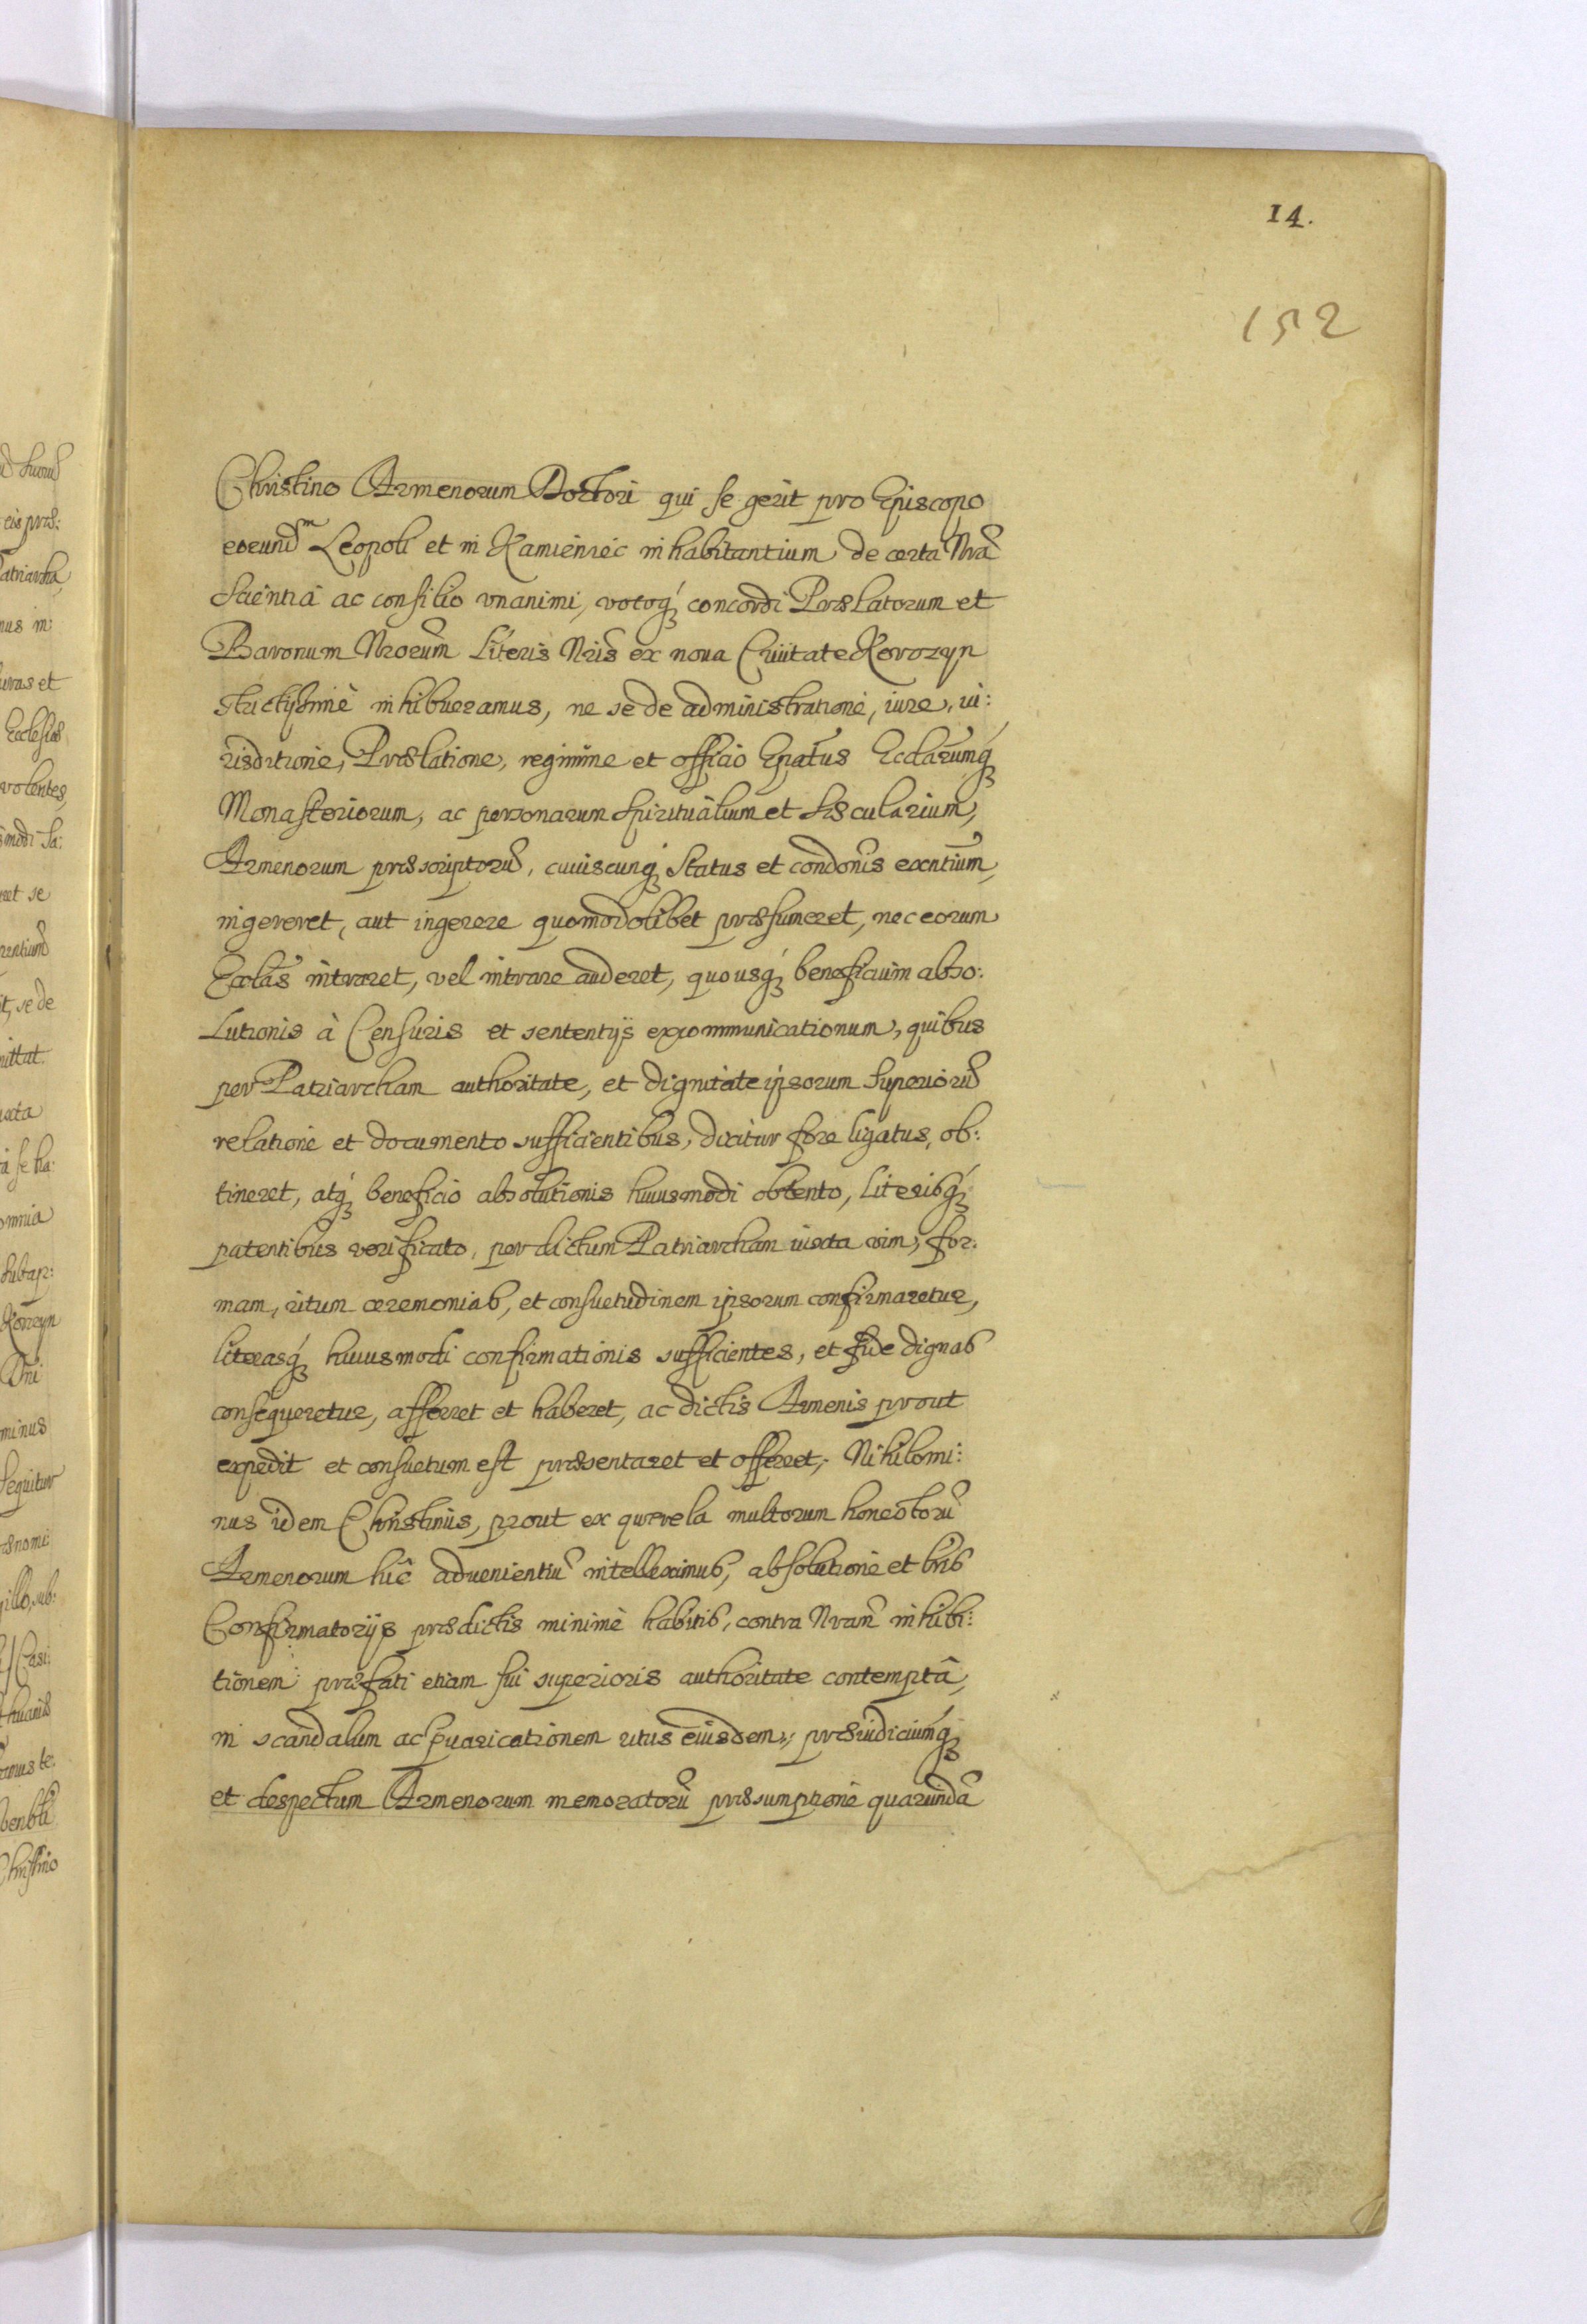 14.
152
Christino Armenorum Doctori qui se gerit pro Episcopo
eorund͠m Leopoli et in Kamieniec inhabitantium de certa Nr̃a
Scientiâ ac consilio vnanimi, votoq́ꝫ concordi Prælatorum et
Baronum Nr̃orum Literis Nr̃is ex noua Ciuitate Korczyn
strictissimè inhibueramus, ne se de administratione, iure, iu:
risditione, Prælatione, regimine et officio Ep̃atus Eccl̃arumq́ꝫ
Monasteriorum, ac personarum spiritualium et sæcularium,
Armenorum præscriptorũ, cuiuscunqꝫ Status et condõnis exñtium,
ingereret, aut ingerere quomodolibet præsumeret, nec eorum
Eccl̃as intraret, vel intrare auderet, quousq́ꝫ beneficium abso:
lutionis à Censuris et sententijs excommunicationum, quibus
per Patriarcham authoritate, et dignitate ipsorum Superiorũ
relatione et documento sufficientibus, dicitur fore ligatus, ob:
tineret, atq́ꝫ beneficio absolutionis huiusmodi obtento, Literisq́ꝫ
patentibus verificato, per dictum Patriarcham iuxta vim, for:
mam, ritum ceremonias, et consuetudinem ipsorum confirmaretur,
literasq́ꝫ huiusmodi confirmationis sufficientes, et fide dignas
consequeretur, afferret et haberet, ac dictis Armenis prout
expedit et consuetum est præsentaret et offerret, Nihilomi:
nus idem Christinus, prout ex querela multorum honestorũ
Armenorum huc aduenientiũ intelleximus, absolutione et lr̃is
Confirmatorijs prædictis minimè habitis, contra Nr̃am inhibi:
tionem præfati etiam sui superioris authoritate contemptâ,
in scandalum ac p̃uaricationem ritus eiusdem, præiudiciumq́ꝫ
et despectum Armenorum memoratorũ præsumptione quarundã